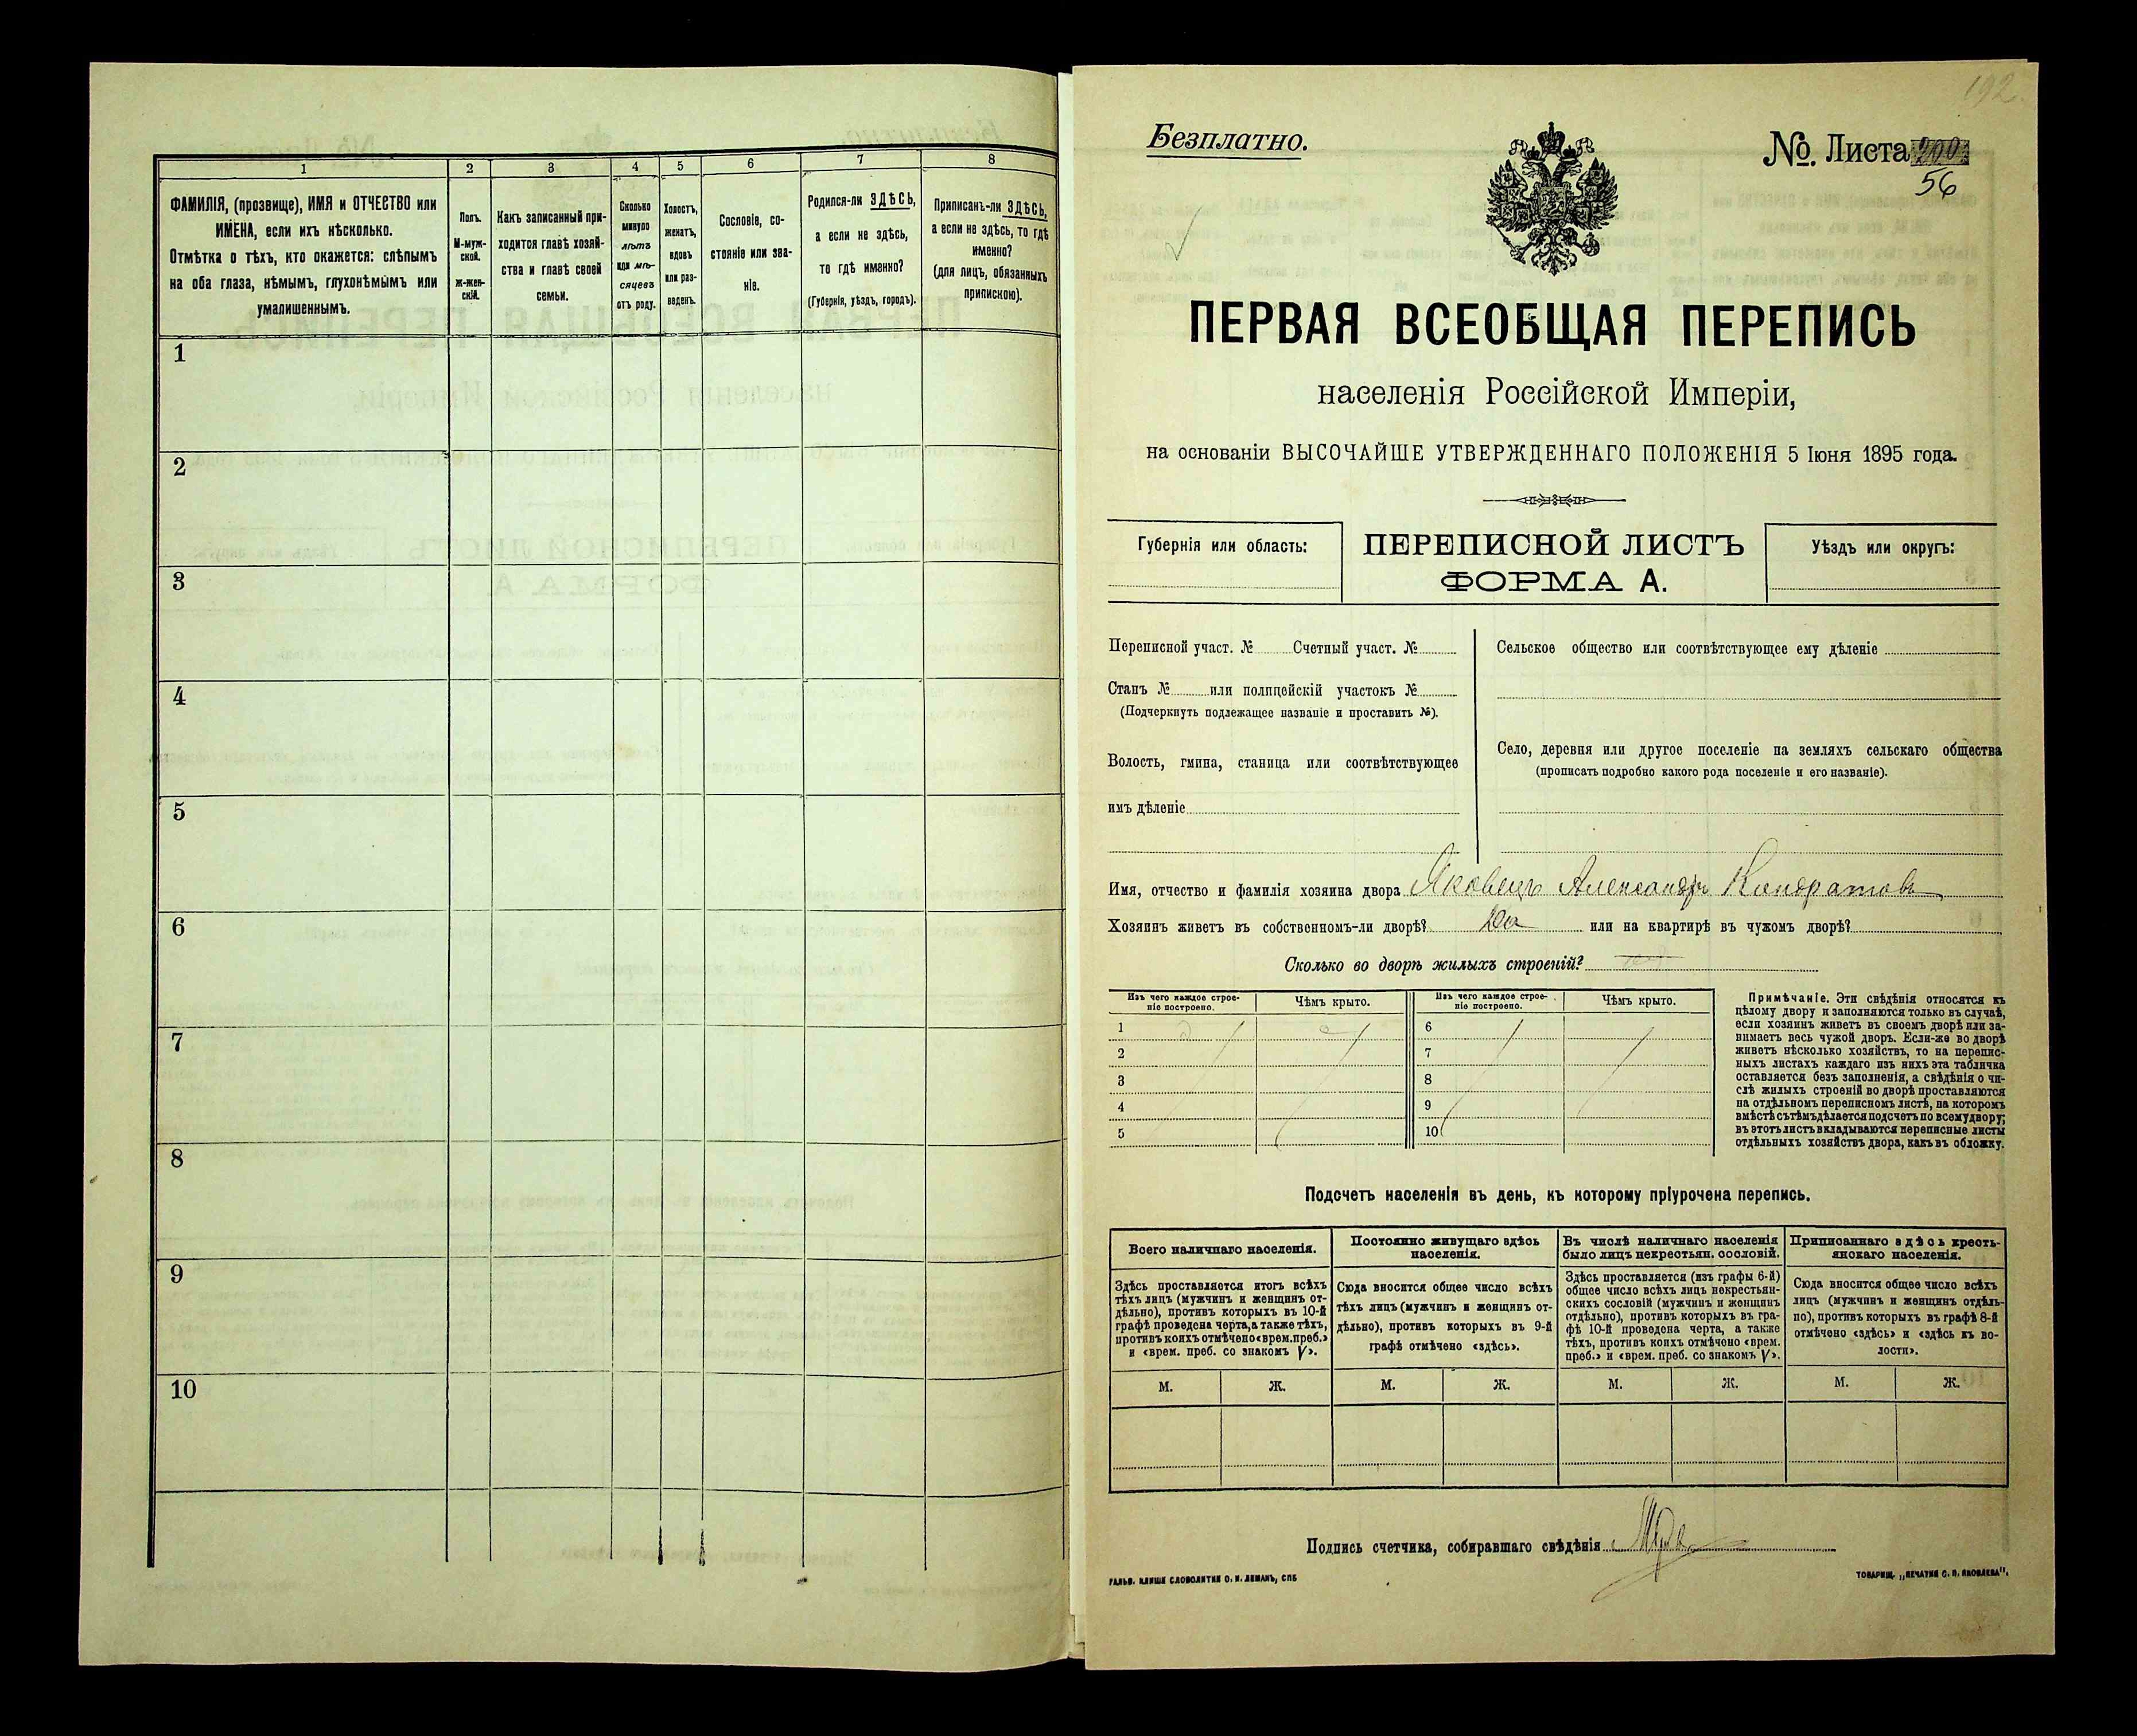 1
2
3
4
5
6
7
8
ФАМИЛІЯ, (прозвище), ИМЯ и ОТЧЕСТВО или
ИМЕНА, если ихъ нѣсколько.
Отмѣтка о тѣхъ, кто окажется: слѣпымъ
на оба глаза, нѣмымъ, глухонѣмымъ или
умалишеннымъ.
Полъ.
М-муж-
ской.
ж-жен-
скій.
Какъ записанный при-
ходится главѣ хозяй-
ства и главѣ своей
семьи.
Сколько
минуло
лѣтъ
или мѣ-
сяцевъ
отъ роду.
Холостъ,
женатъ,
вдовъ
или раз-
веденъ.
Сословіе, со-
стояніе или зва-
ніе.
Родился-ли ЗДѢСЬ,
а если не здѣсь,
то гдѣ именно?
(Губернія, уѣздъ, городъ).
Приписанъ-ли ЗДѢСЬ,
а если не здѣсь, то гдѣ
именно?
(для лицъ, обязанныхъ
припискою).
1
2
3
4
5
6
7
8
9
10
192.
Безплатно.
№. Листа 200
56
ПЕРВАЯ ВСЕОБЩАЯ ПЕРЕПИСЬ
населенія Россійской Имперіи,
на основаніи ВЫСОЧАЙШЕ УТВЕРЖДЕННАГО ПОЛОЖЕНІЯ 5 Іюня 1895 года.
Губернія или область:
ПЕРЕПИСНОЙ ЛИСТЪ
ФОРМА А.
Уѣздъ или округъ:
Переписной участ. № Счетный участ. №
Станъ № или полицейскій участокъ №
(Подчеркнуть подлежащее названіе и проставить №).
Волость, гмина, станица или соотвѣтствующее
имъ дѣленіе
Сельское общество или соотвѣтствующее ему дѣленіе
Село, деревня или другое поселеніе на земляхъ сельскаго общества
(прописать подробно какого рода поселеніе и его названіе).
Имя, отчество и фамилія хозяина двора Яковецъ Александръ Кондратовъ
Хозяинъ живетъ въ собственномъ-ли дворѣ? Да или на квартирѣ въ чужомъ дворѣ?
Сколько во дворѣ жилыхъ строеній?
Изъ чего каждое строе-
ніе построено.
Чѣмъ крыто.
Изъ чего каждое строе-
ніе построено.
Чѣмъ крыто.
1
2
3
4
5
6
7
8
9
10
Примѣчаніе. Эти свѣдѣнія относятся къ
цѣлому двору и заполняются только въ случаѣ,
если хозяинъ живетъ въ своемъ дворѣ или за-
нимаетъ весь чужой дворъ. Если-же во дворѣ
живетъ нѣсколько хозяйствъ, то на перепис-
ныхъ листахъ каждаго изъ нихъ эта табличка
оставляется безъ заполненія, а свѣдѣнія о чи-
слѣ жилыхъ строеній во дворѣ проставляются
на отдѣльномъ переписномъ листѣ, на которомъ
вмѣстѣ съ тѣмъ дѣлается подсчетъ по всему двору;
въ этотъ листъ вкладываются переписные листы
отдѣльныхъ хозяйствъ двора, какъ въ обложку.
Подсчетъ населенія въ день, къ которому пріурочена перепись.
Всего наличнаго населенія.
Постоянно живущаго здѣсь
населенія.
Въ числѣ наличнаго населенія
было лицъ некрестьян. сословій.
Приписаннаго здѣсь кресть-
янскаго населенія.
Здѣсь проставляется итогъ всѣхъ
тѣхъ лицъ (мужчинъ и женщинъ от-
дѣльно), противъ которыхъ въ 10-й
графѣ проведена черта, а также тѣхъ,
противъ коихъ отмѣчено «врем. преб.»
и «врем. преб. со знакомъ V».
Сюда вносится общее число всѣхъ
тѣхъ лицъ (мужчинъ и женщинъ от-
дѣльно), противъ которыхъ въ 9-й
графѣ отмѣчено «здѣсь».
Здѣсь проставляется (изъ графы 6-й)
общее число всѣхъ лицъ некрестьян-
скихъ сословій (мужчинъ и женщинъ
отдѣльно), противъ которыхъ въ гра-
фѣ 10-й проведена черта, а также
тѣхъ, противъ коихъ отмѣчено «врем.
преб.» и «врем. преб. со знакомъ V».
Сюда вносится общее число всѣхъ
лицъ (мужчинъ и женщинъ отдѣль-
но), противъ которыхъ въ графѣ 8-й
отмѣчено «здѣсь» и «здѣсь въ во-
лости».
М.
Ж.
М.
Ж.
М.
Ж.
М.
Ж.
Подпись счетчика, собиравшаго свѣдѣнія
ГАЛЬВ. КЛИШЕ СЛОВОЛИТНИ О. И. ЛЕМАНЪ, СПБ
ТОВАРИЩ. „ПЕЧАТНЯ С. П. ЯКОВЛЕВА".